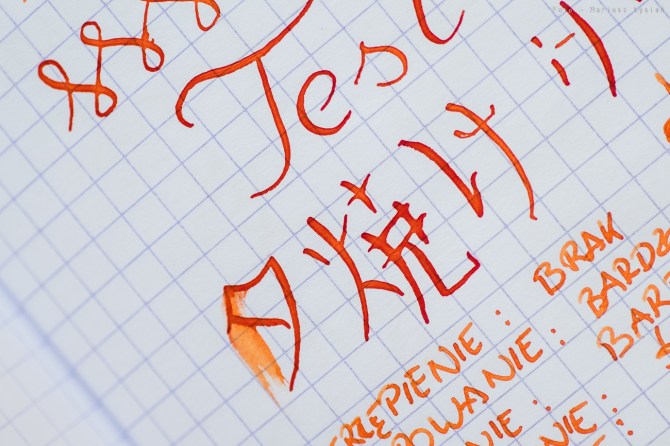 Test :-)
夕焼け
RZĘPIENIE : BRAK
OWANIE : BARDZ
NIE : BAR
NIE :